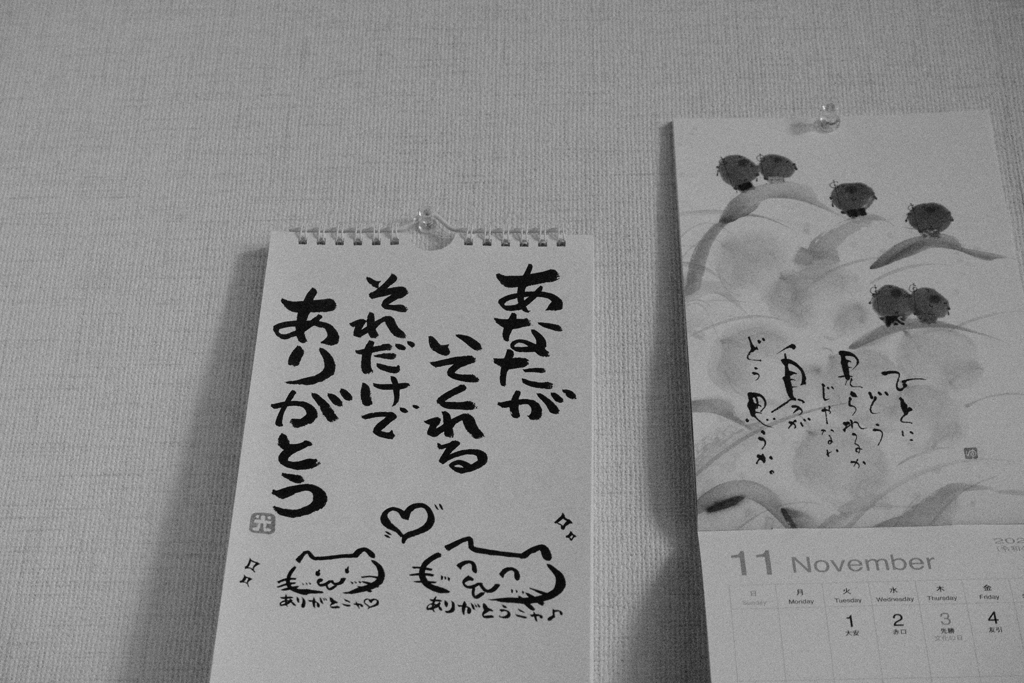 あなたが
いてくれる
それだけで
ありがとう
光
ありがとニャ♡
ありがとうニャ♪
ひとに
どう
見られるか
じゃない
自分が
どう思うか。
11 November
日 月 火 水 木 金
Sunday Monday Tuesday Wednesday Thursday Friday
1 2 3 4
大安 赤口 先勝 友引
文化の日